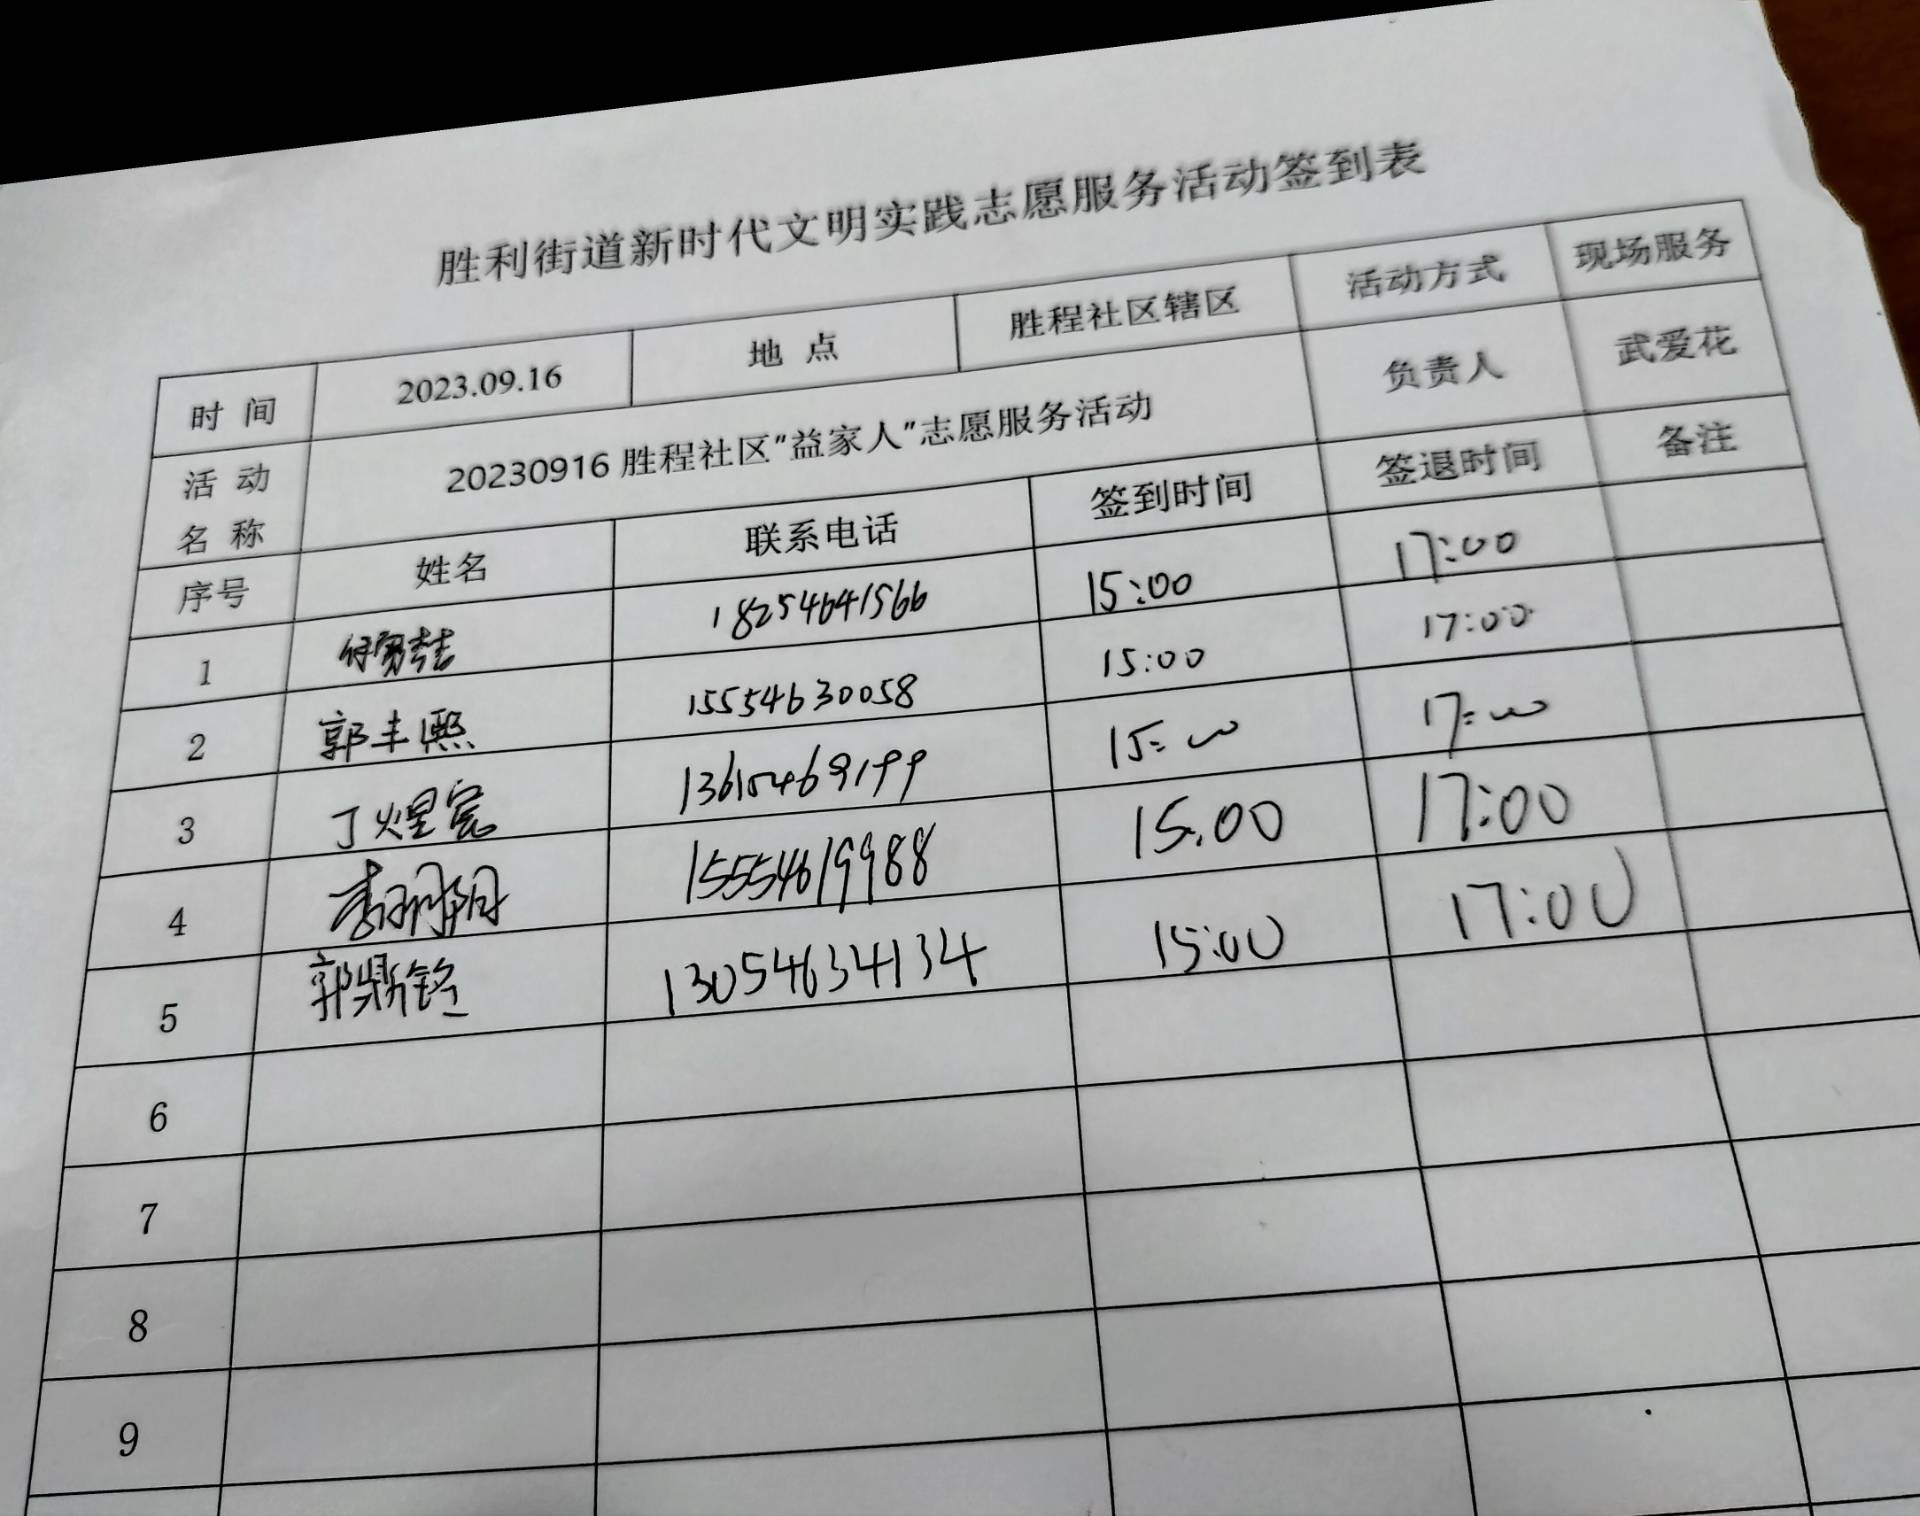 胜利街道新时代文明实践志愿服务活动签到表
时 间 2023.09.16 地 点 胜程社区辖区 活动方式 现场服务
活 动 名 称 20230916 胜程社区“益家人”志愿服务活动 负责人 武爱花
序号 姓名 联系电话 签到时间 签退时间 备注
1 18254641566 15:00 17:00
2 郭丰熙 15554630058 15:00 17:00
3 丁煜宸 13615469199 15:00 17:00
4 15554619988 15.00 17:00
5 郭鼎铭 13054634134 15:00 17:00
6
7
8
9